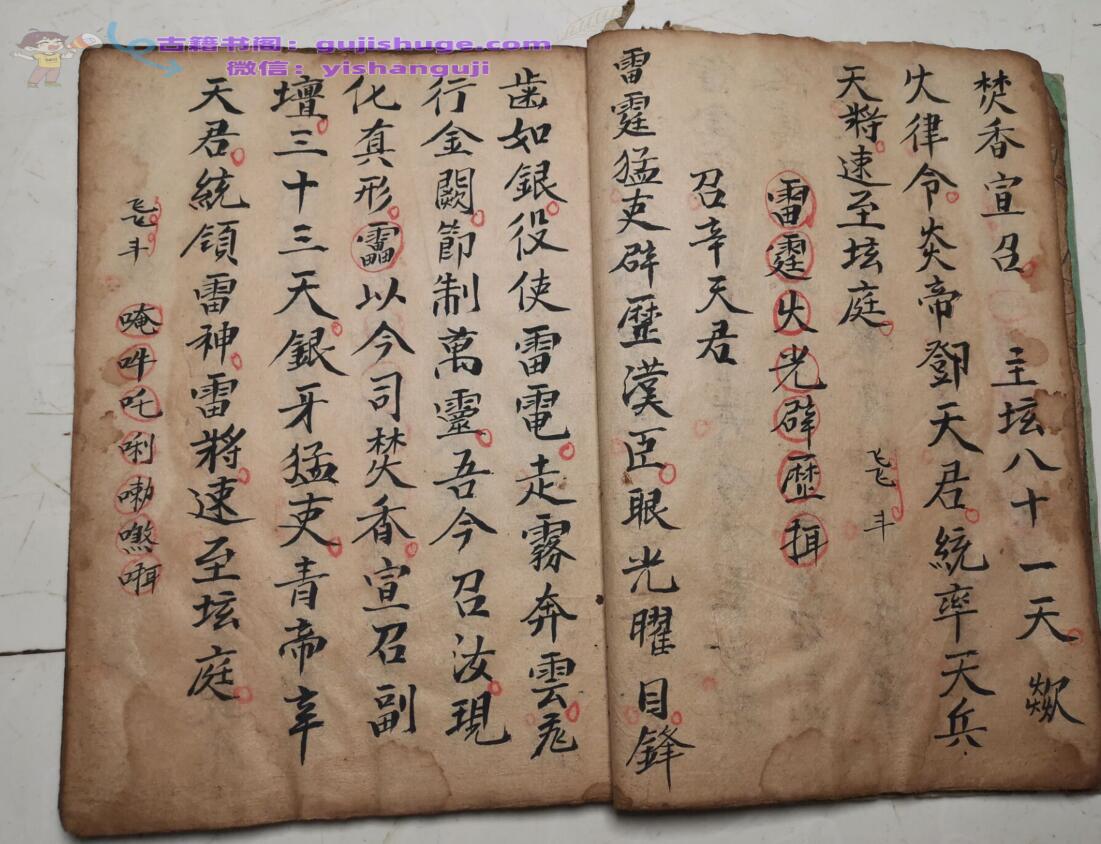 古籍书阁：gujishuge.com
微信：yishanguji
焚香宣召 主坛八十一天 歘
火律令炎帝鄧天君統率天兵
天将速至坛庭 飞斗
雷霆火光霹歷揖
召辛天君
雷霆猛吏辟歷漢臣眼光曜目鋒
歯如銀役使雷電走霧奔雲飛
行金闕節制萬靈吾今召汝現
化真形靁以今司焚香宣召副
壇三十三天銀牙猛吏青帝辛
天君統領雷神雷将速至坛庭
飞斗 唵吽吒唎